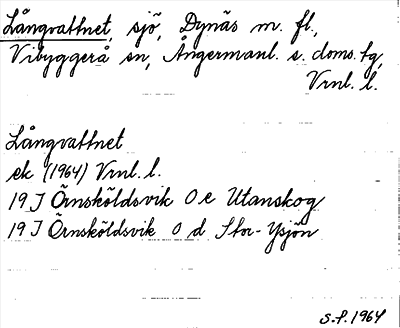 Långvattnet, sjö, Dynäs m. fl.,
Vibyggerå sn, Ångermanl. s. doms. tg,
Vrnl. l.
Långvattnet
ek (1964) Vrnl. l.
19 J Örnsköldsvik 0 e Utanskog
19 J Örnsköldsvik 0 d Stor-Ysjön
S.F. 1964